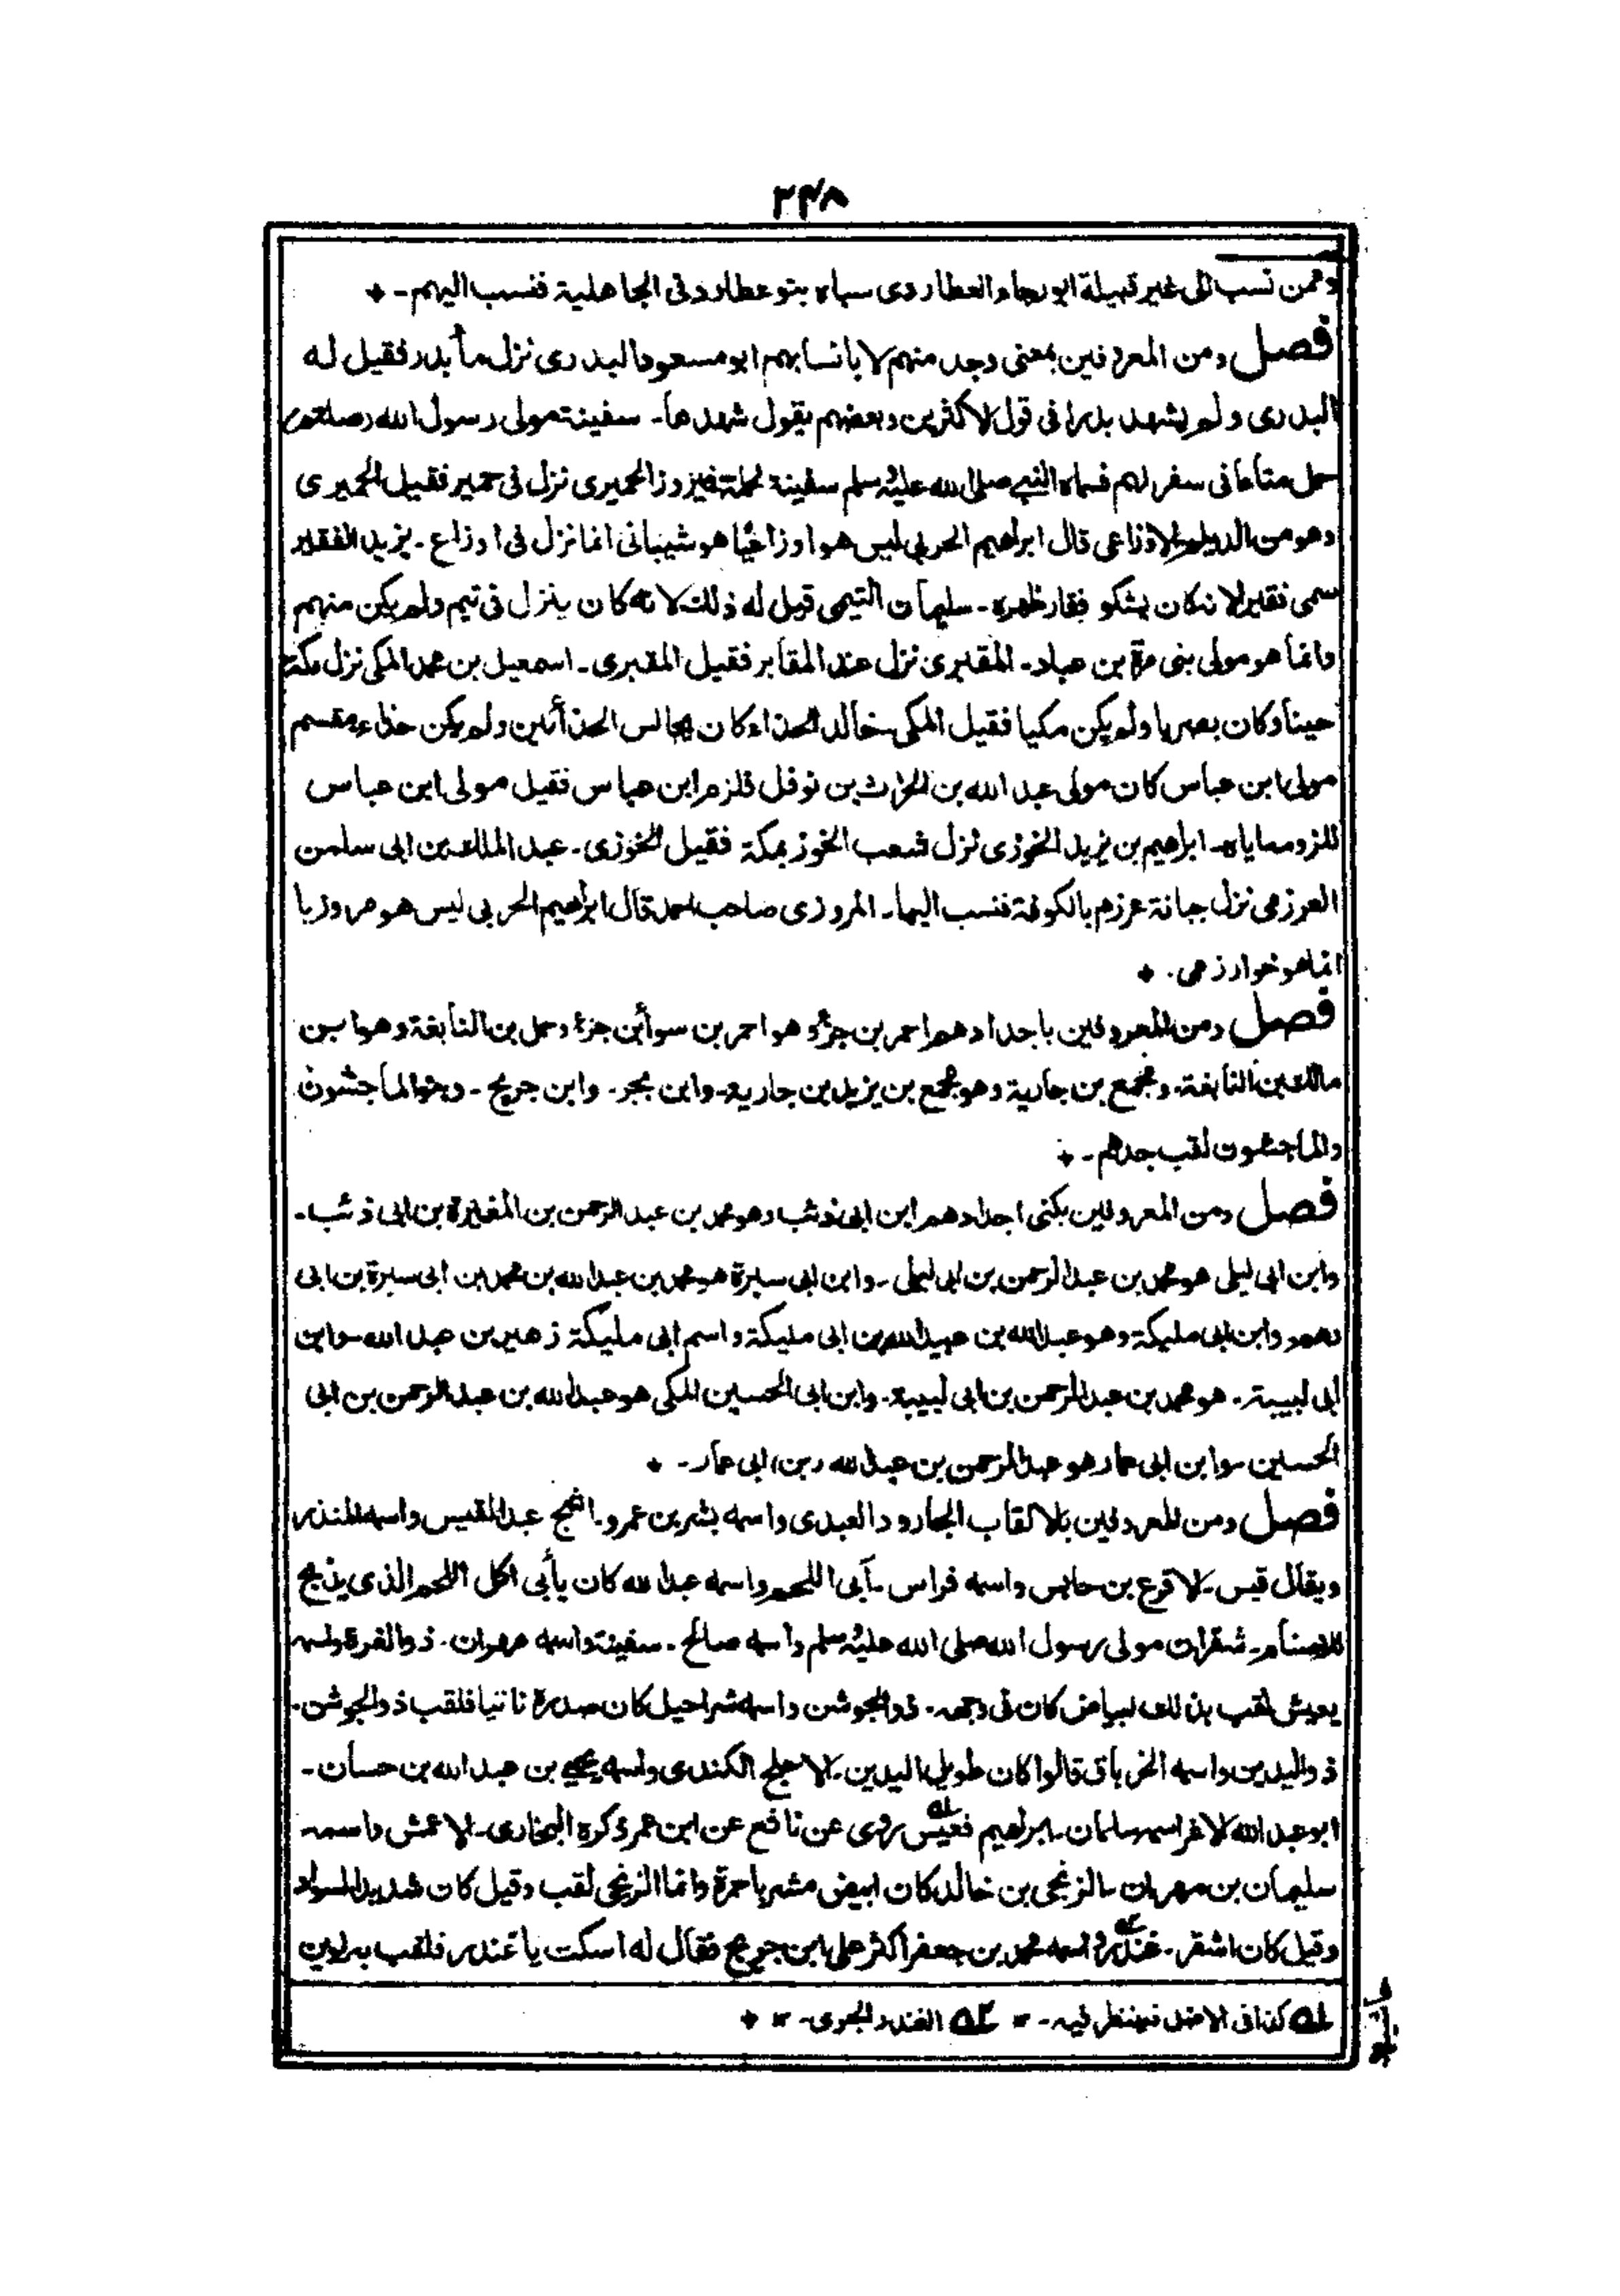 ٢٤٨
وممن نسب الى غير قبيلة ابو رجاء العطاردى سباه بنو عطارد فى الجاهلية فنسب اليهم۔
فصل ومن المعروفين بمعنى وجد منهم لا بانسابهم ابو مسعود البدرى نزل ماء بدر فقيل له
البدرى ولم يشهد بدرا فى قول الاكثرين وبعضهم يقول شهدها۔ سفينة مولى رسول الله (صلعم)
حمل متاعا فى سفر لهم فسماه النبى صلى الله عليه وسلم سفينة لحمله فيروز الحميرى نزل فى حمير فقيل الحميرى
وهو من الديلم الاوزاعى قال ابراهيم الحربى ليس هو اوزاعيا هو شيبانى انما نزل فى اوزاع۔ يزيد الفقير
سمى فقيرا لانه كان يشكو فقار ظهره۔ سليمان التيمى قيل له ذلك لانه كان ينزل فى تيم ولم يكن منهم
وانما هو مولى بنى مرة بن عباد۔ المقبرى نزل عند المقابر فقيل المقبرى۔ اسمعيل بن محمد المكى نزل مكة
حينا وكان بصريا ولم يكن مكيا فقيل المكى۔ خالد الحذاء كان يجالس الحذائين ولم يكن حذاء مقسم
مولى ابن عباس كان مولى عبد الله بن الحراث بن نوفل فلزم ابن عباس فقيل مولى ابن عباس
للزومه اياه۔ ابراهيم بن يزيد الخوزى نزل شعب الخوز بمكة فقيل الخوزى۔ عبد الملك بن ابى سلمن
العرزمى نزل جبانة عرزم بالكوفة فنسب اليها۔ المروزى صاحب احمد قال ابراهيم الحربى ليس هو مروزيا
انما هو خوارزمى۔
فصل ومن المعروفين باجدادهم احمر بن جزء وهو احمر بن سواء بن جزء وحمل بن النابغة وهو ابن
مالك بن النابغة۔ ومجمع بن جارية وهو مجمع بن يزيد بن جارية۔ وابن بجر۔ وابن جريج۔ وبنو الماجشون
والماجشون لقب جدهم۔
فصل ومن المعروفين بكنى اجدادهم ابن ابى ذئب وهو محمد بن عبد الرحمن بن المغيرة بن ابى ذئب۔
وابن ابى ليلى هو محمد بن عبد الرحمن بن ابى ليلى۔ وابن ابى سبرة هو محمد بن عبد الله بن محمد بن ابى سبرة بن ابى
وابن ابى مليكة وهو عبد الله بن عبيد الله بن ابى مليكة واسم ابى مليكة زهير بن عبد الله۔ وابن
ابى لبيبة۔ هو محمد بن عبد الرحمن بن ابى لبيبة۔ وابن ابى الحسين المكى هو عبد الله بن عبد الرحمن بن ابى
الحسين۔ وابن ابى عمار هو عبد الرحمن بن عبد الله (بن) ابى عمار۔
فصل ومن المعروفين بالالقاب الجارود العبدى واسمه بشر بن عمرو۔ اشج عبد القيس واسمه المنذر
ويقال قيس۔ الاقرع بن حابس واسمه فراس۔ آبى اللحم واسمه عبد الله كان يأبى اكل اللحم الذى يذبح
للاصنام۔ شقران مولى رسول الله صلى الله عليه وسلم واسمه صالح۔ سفينة واسمه مهران۔ ذو الغرة واسمه
يعيش لقب بذلك لبياض كان فى وجهه۔ ذو الجوشن واسمه شراحيل كان صدره ناتيا فلقب ذو الجوشن۔
ذو اليدين واسمه الخرباق قالوا كان طويل اليدين۔ الاجلح الكندى واسمه يحيى بن عبد الله بن حسان۔
ابو عبد الله الاغر اسمه سلمان۔ ابراهيم قعيس روى عن نافع عن ابن عمر ذكره البخارى۔ الاعمش واسمه
سليمان بن مهران۔ الزنجى بن خالد كان ابيض مشربا حمرة وانما الزنجى لقب وقيل كان شديد السواد
وقيل كان اشقر۔ غندر واسمه محمد بن جعفر اكثر على ابن جريج فقال له اسكت يا غندر فلقب به۔
ه١ كذا فى الاصل فينظر فيه۔ ١٢ ه٢ الغندر۔ ١٢